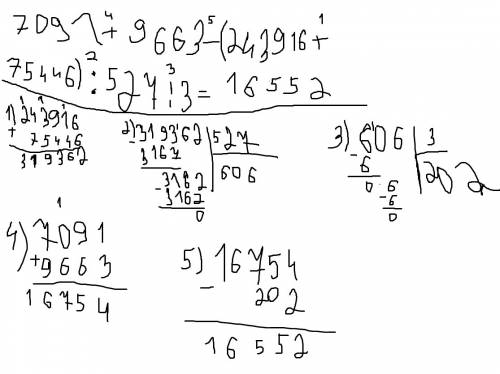 4 5 1
7091 + 9663 - (243916 +
2 3
75446) : 527 : 3 = 16552
1) 243916
+ 75446
319362
2) 319362 527
- 3162 606
- 3162
3162
0
3) 606 3
- 6 202
0 6
- 6
0
1
4) 7091
+ 9663
16754
5) 16754
- 202
16552